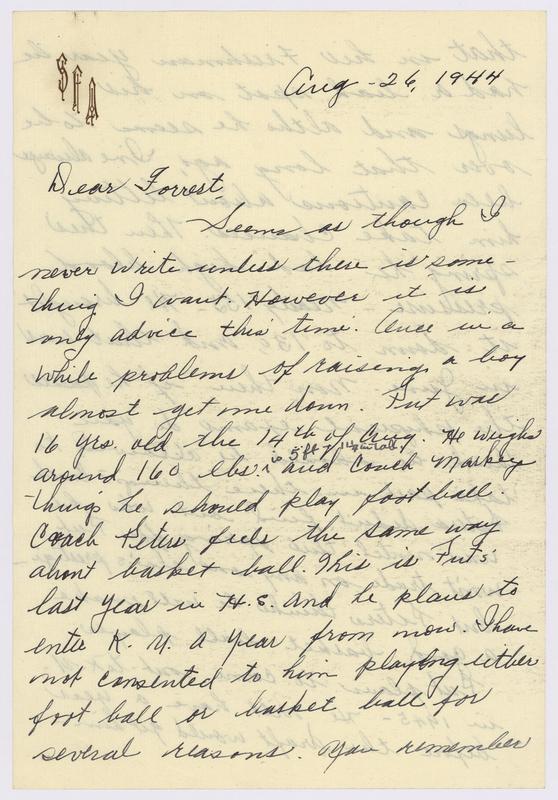 SFA
Aug - 26, 1944
Dear Forrest,
Seems as though I
never write unless there is some-
thing I want. However it is
only advice this time. Once in a
while problems of raising a boy
almost get me down. Put was
16 yrs. old the 14th of Aug. He weighs
is 5 ft tall
around 160 lbs. and Coach Markey
things he should play foot ball.
Coach Peters feels the same way
about basket ball. This is Put's
last year in H.S. and he plans to
enter K.U. a year from now. I have
not consented to him playing either
foot ball or basket ball for
several reasons. You remember